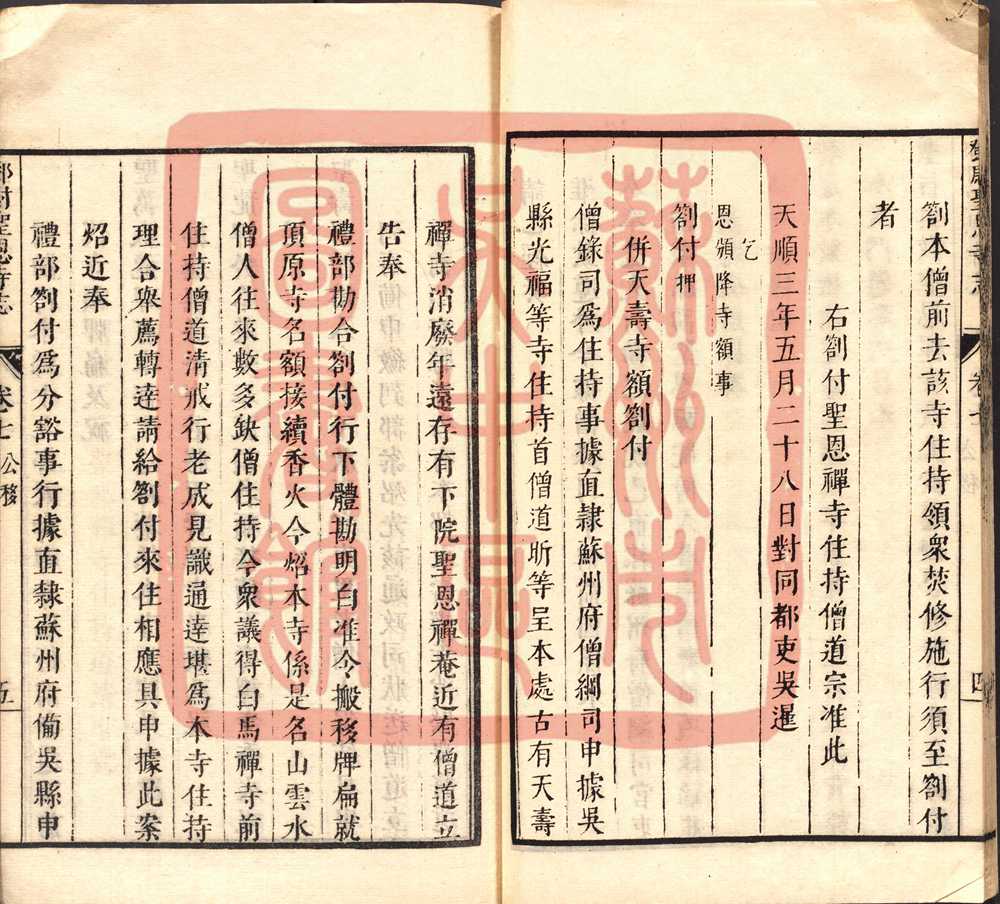 劄本僧前去該寺住持領衆焚修施行須至劄付
者
右劄付聖恩禪寺住持僧道宗准此
天順三年五月二十八日對同都吏吳暹
乞
恩頒降寺額事
劄付押
併天壽寺額劄付
僧錄司爲住持事據直隸蘇州府僧綱司申據吳
縣光福等寺住持首僧道昕等呈本處古有天壽
禪寺消廢年遠存有下院聖恩禪菴近有僧道立
告奉
禮部勘合劄付行下體勘明白准令搬移牌扁就
頂原寺名額接續香火今炤本寺係是名山雲水
僧人往來數多缺僧住持今衆議得白馬禪寺前
住持僧道清戒行老成見識通達堪爲本寺住持
理合舉薦轉達請給劄付來住相應具申據此案
炤近奉
禮部劄付爲分豁事行據直隸蘇州府備吳縣申
聖恩寺志
卷七 公移
五
四
蘇州市
吳中區
圖書館